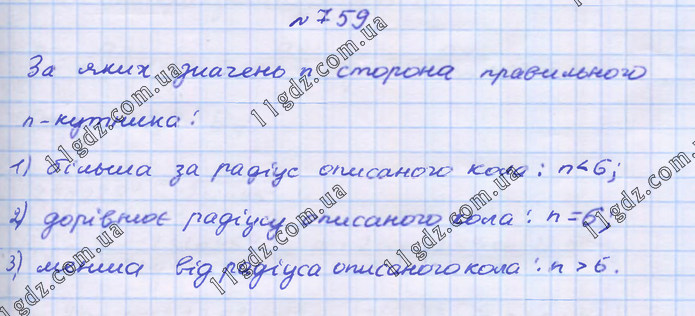 №759
За яких значень n сторона правильного
n-кутника:
1) більша за радіус описаного кола: n<6;
2) дорівнює радіусу описаного кола: n=6;
3) менша від радіуса описаного кола: n>6.
11gdz.com.ua
11gdz.com.ua
11gdz.com.ua
11gdz.com.ua
11gdz.com.ua
11gdz.com.ua